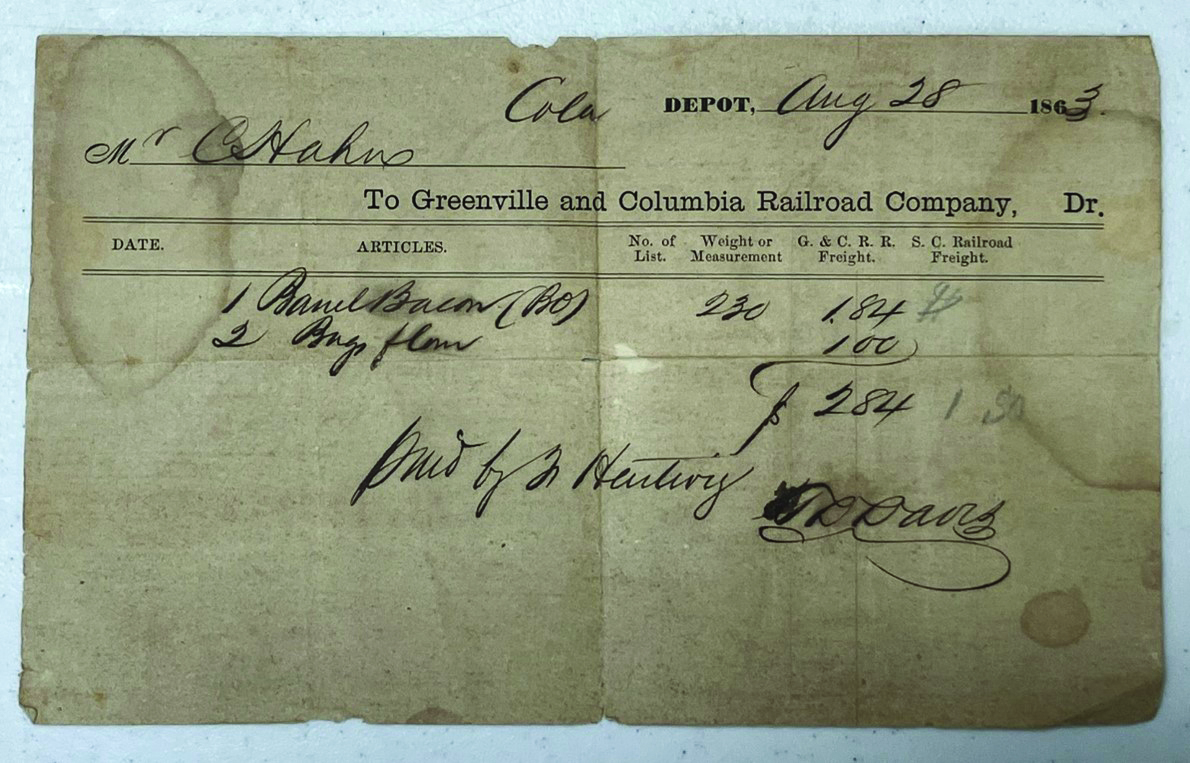 Cola DEPOT, Aug 28 1863.
Mr C Hahn
To Greenville and Columbia Railroad Company, Dr.
DATE. ARTICLES. No. of List. Weight or Measurement G. & C. R. R. Freight. S. C. Railroad Freight.
1 Barrel Bacon (BO) 230 1.84
2 Bags flour 1 00
$ 2 84 1 50
Paid by Hentwig
D Davis